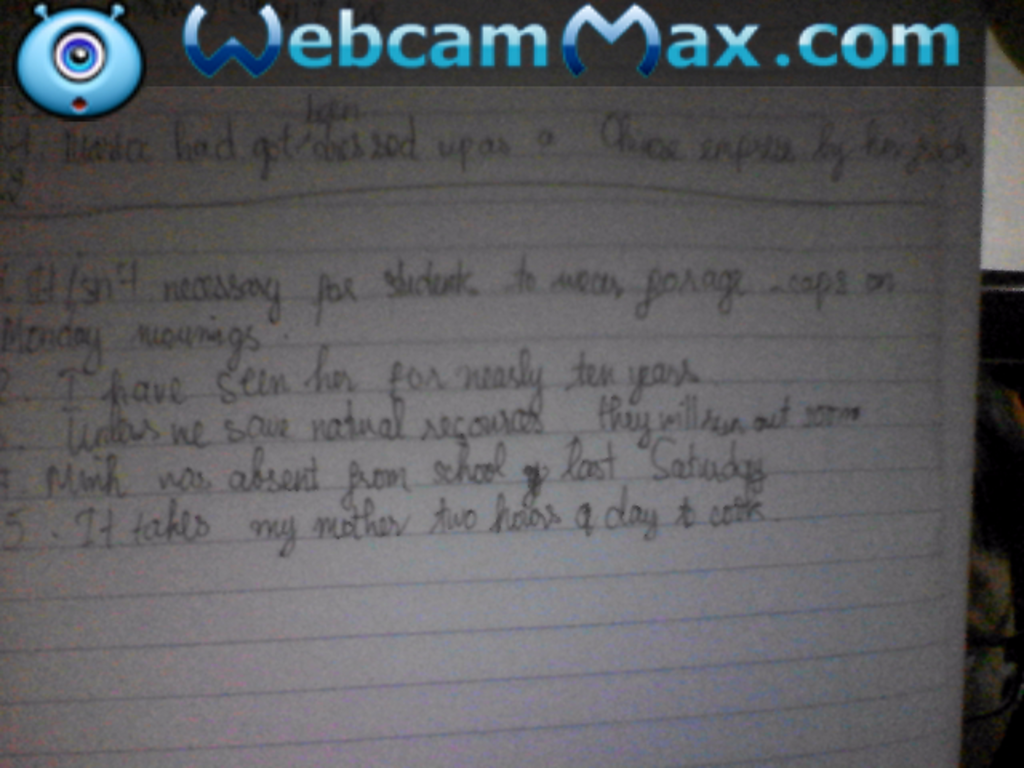 WebcamMax.com
had got dressed up as a by her
1. It isn't necessary for students to wear forage-caps on
Monday mournings.
2. I have seen her for nearly ten years.
Unless we save natural they will run out soon
Minh was absent from school last Saturday
5. It takes my mother two hours a day to cook.